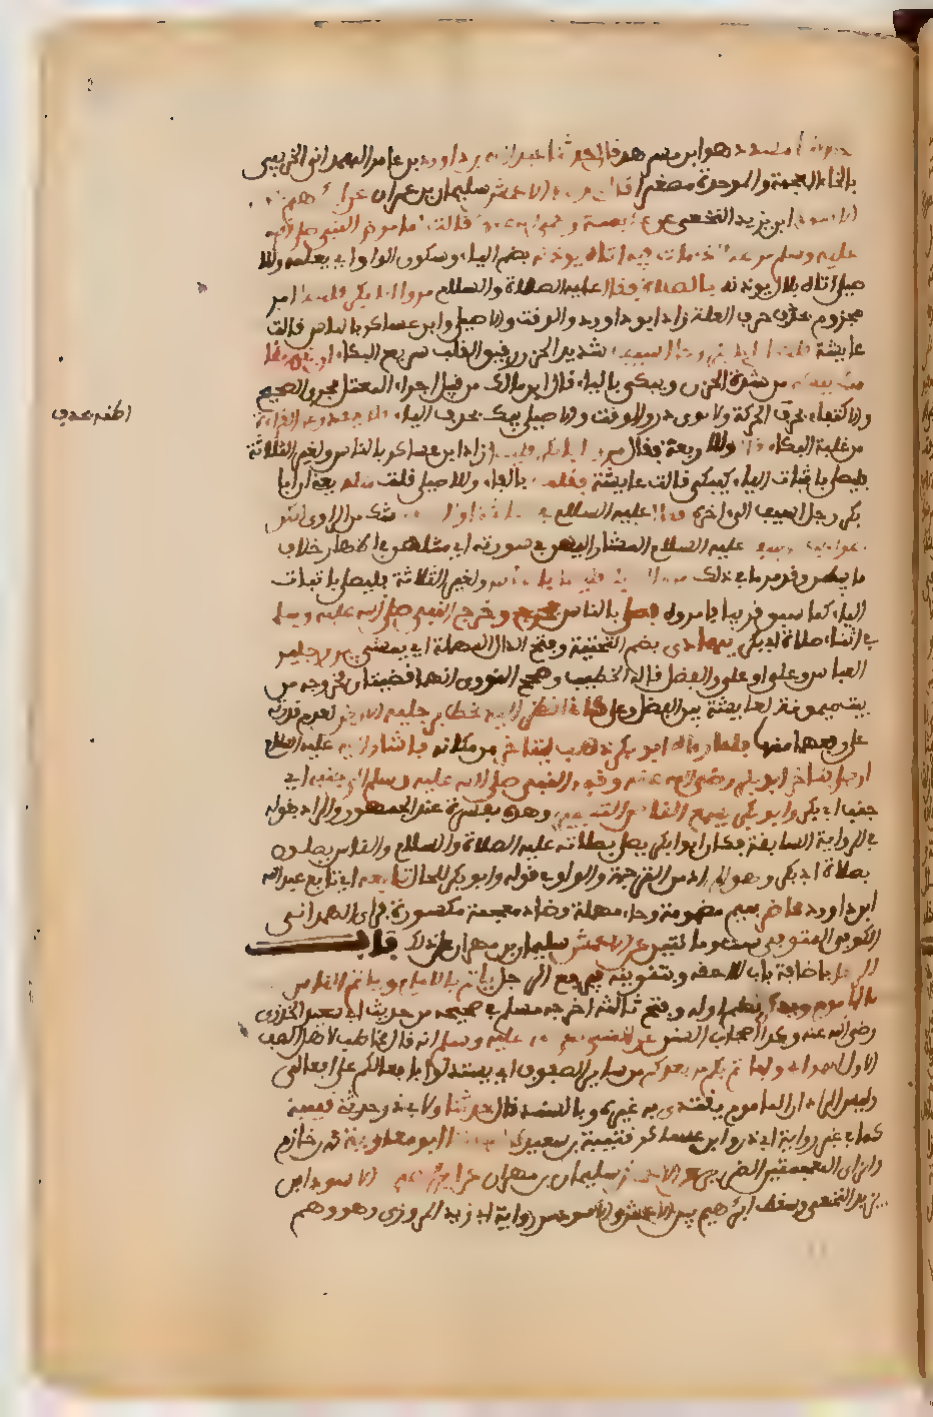 حدثنا مسدد هو ابن مسرهد قال حدثنا عبد الله بن داود بن عامر الهمداني الخريبي
بالخاء المعجمة والموحدة مصغرا قال حدثنا الاعمش سليمان بن مهران عن ابراهيم
الاسود ابن يزيد النخعي عن عايشة رضي الله عنها قالت لما مرض النبي صلى الله
عليه وسلم مرضه الذي مات فيه اتاه يوذنه بضم الياء وسكون الواو اي يعلمه وللا
صيلي اتاه بلال يوذنه بالصلاة فقال عليه الصلاة والسلام مروا ابا بكر فليصل امر
مجزوم بحذف حرف العلة زاد ابو داود والوقت والاصيلي وابن عساكر بالناس قالت
عايشة قلت ان ابا بكر رجل اسيف شديد الحزن رقيق القلب سريع البكاء ان يقم مقا
مك يبكي من شدة الحزن ويبكي بالياء قال ابن مالك من قبيل اجراء المعتل مجرى الصحيح
والاكتفاء بحذف الحركة ولابوي ذر والوقت والاصيلي يبك بحذف الياء فلا يقدر على القراءة
من غلبة البكاء قال وللاربعة فقال مروا ابا بكر فليصل زاد ابن عساكر بالناس ولغير الثلاثة
فليصلي باثبات الياء كيبكي قالت عايشة فقلت بالفاء وللاصيلي قلت مثله يعني ان ابا
بكر رجل اسيف الى اخره فقال عليه السلام في الثالثة او الرابعة شك من الراوي انكن
صواحب يوسف عليه السلام المشار اليهن في سورته اي مثلهن في اظهار خلاف
ما يبطن وقد مر ما في ذلك مروا ابا بكر فليصل بالناس ولغير الثلاثة فليصلي باثبات
الياء كما سبق قريبا فامروه فصلى بالناس فخرج وخرج النبي صلى الله عليه وسلم
في اثناء صلاة ابي بكر يهادى بضم التحتية وفتح الدال المهملة اي يمشي بين رجلين
العباس وعلي او علي والفضل قاله الخطيب وصحح النووي انهما قضيتان فخروجه من
بيت ميمونة لعايشة بين الفضل وعلي كاني انظر اليه يخط برجليه الارض لعدم قوته
على رفعهما منها فلما راه ابو بكر ذهب ليتاخر من مكانه فاشار اليه عليه السلام
ان صل فتاخر ابو بكر رضي الله عنه وقعد النبي صلى الله عليه وسلم الى جنبه اي
جنب ابي بكر وابو بكر يسمع الناس التكبير وهذه مفسرة عند الجمهور والمراد بقوله
في الرواية السابقة فكان ابو بكر يصلي بصلاته عليه الصلاة والسلام والناس يصلون
بصلاة ابي بكر وهو قوله والواو في قوله وابو بكر للحال تابعه اي تابع عبد الله
ابن داود محاضر بميم مضمومة وحاء مهملة وضاد معجمة مكسورة فراء الهمداني
الكوفي المتوفى سنة ست ومائتين عن الاعمش سليمان بن مهران على ذلك باب
الرجل باضافة باب للاحقه وبتنوينه فيرفع الرجل ياتم بالامام وياتم الناس
بالماموم ويذكر بضم اوله وفتح ثالثه اخرجه مسلم في صحيحه من حديث ابي سعيد الخدري
رضي الله عنه وكذا اصحاب السنن عن النبي صلى الله عليه وسلم انه قال مخاطبا لاهل الصف
الاول ائتموا بي وليأتم بكم من بعدكم من ساير الصفوف اي يستدلوا بافعالكم على افعالي
وليس المراد ان الماموم يقتدي به غيره وبالسند قال حدثنا ولابي ذر حدثني قتيبة
كما في غير رواية ابي ذر وابن عساكر قتيبة بن سعيد قال حدثنا ابو معاوية محمد بن خازم
والزاي المعجمتين الضرير عن الاعمش سليمان بن مهران عن ابراهيم عن الاسود ابن
يزيد النخعي وسقط ابراهيم بين الاعمش والاسود من رواية ابي زيد المروزي وهو وهم